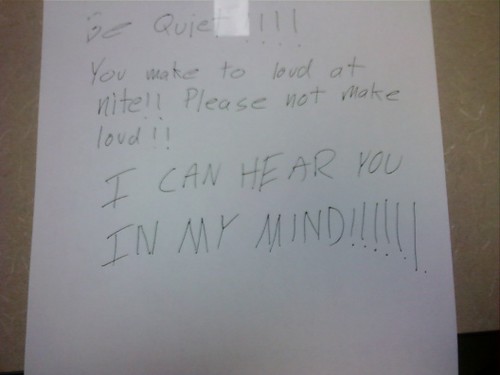 Be Quiet !!!!
You make to loud at
nite!! Please not make
loud!!
I CAN HEAR YOU
IN MY MIND!!!!!!